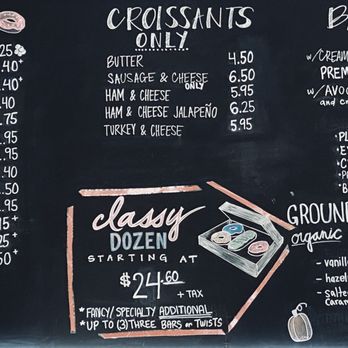 CROISSANTS
ONLY
BUTTER 4.50
SAUSAGE & CHEESE ONLY 6.50
HAM & CHEESE 5.95
HAM & CHEESE JALAPEÑO 6.25
TURKEY & CHEESE 5.95
classy
DOZEN
STARTING AT
$24.60
+ TAX
*FANCY/SPECIALTY ADDITIONAL
*UP TO (3) THREE BARS or TWISTS
w/CREAM
PREM
w/AVO
and
GROUN
organic
- vanill
- hazel
- salte
Caram